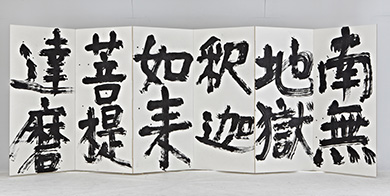 南無
地獄
釈迦
如来
菩提
達磨